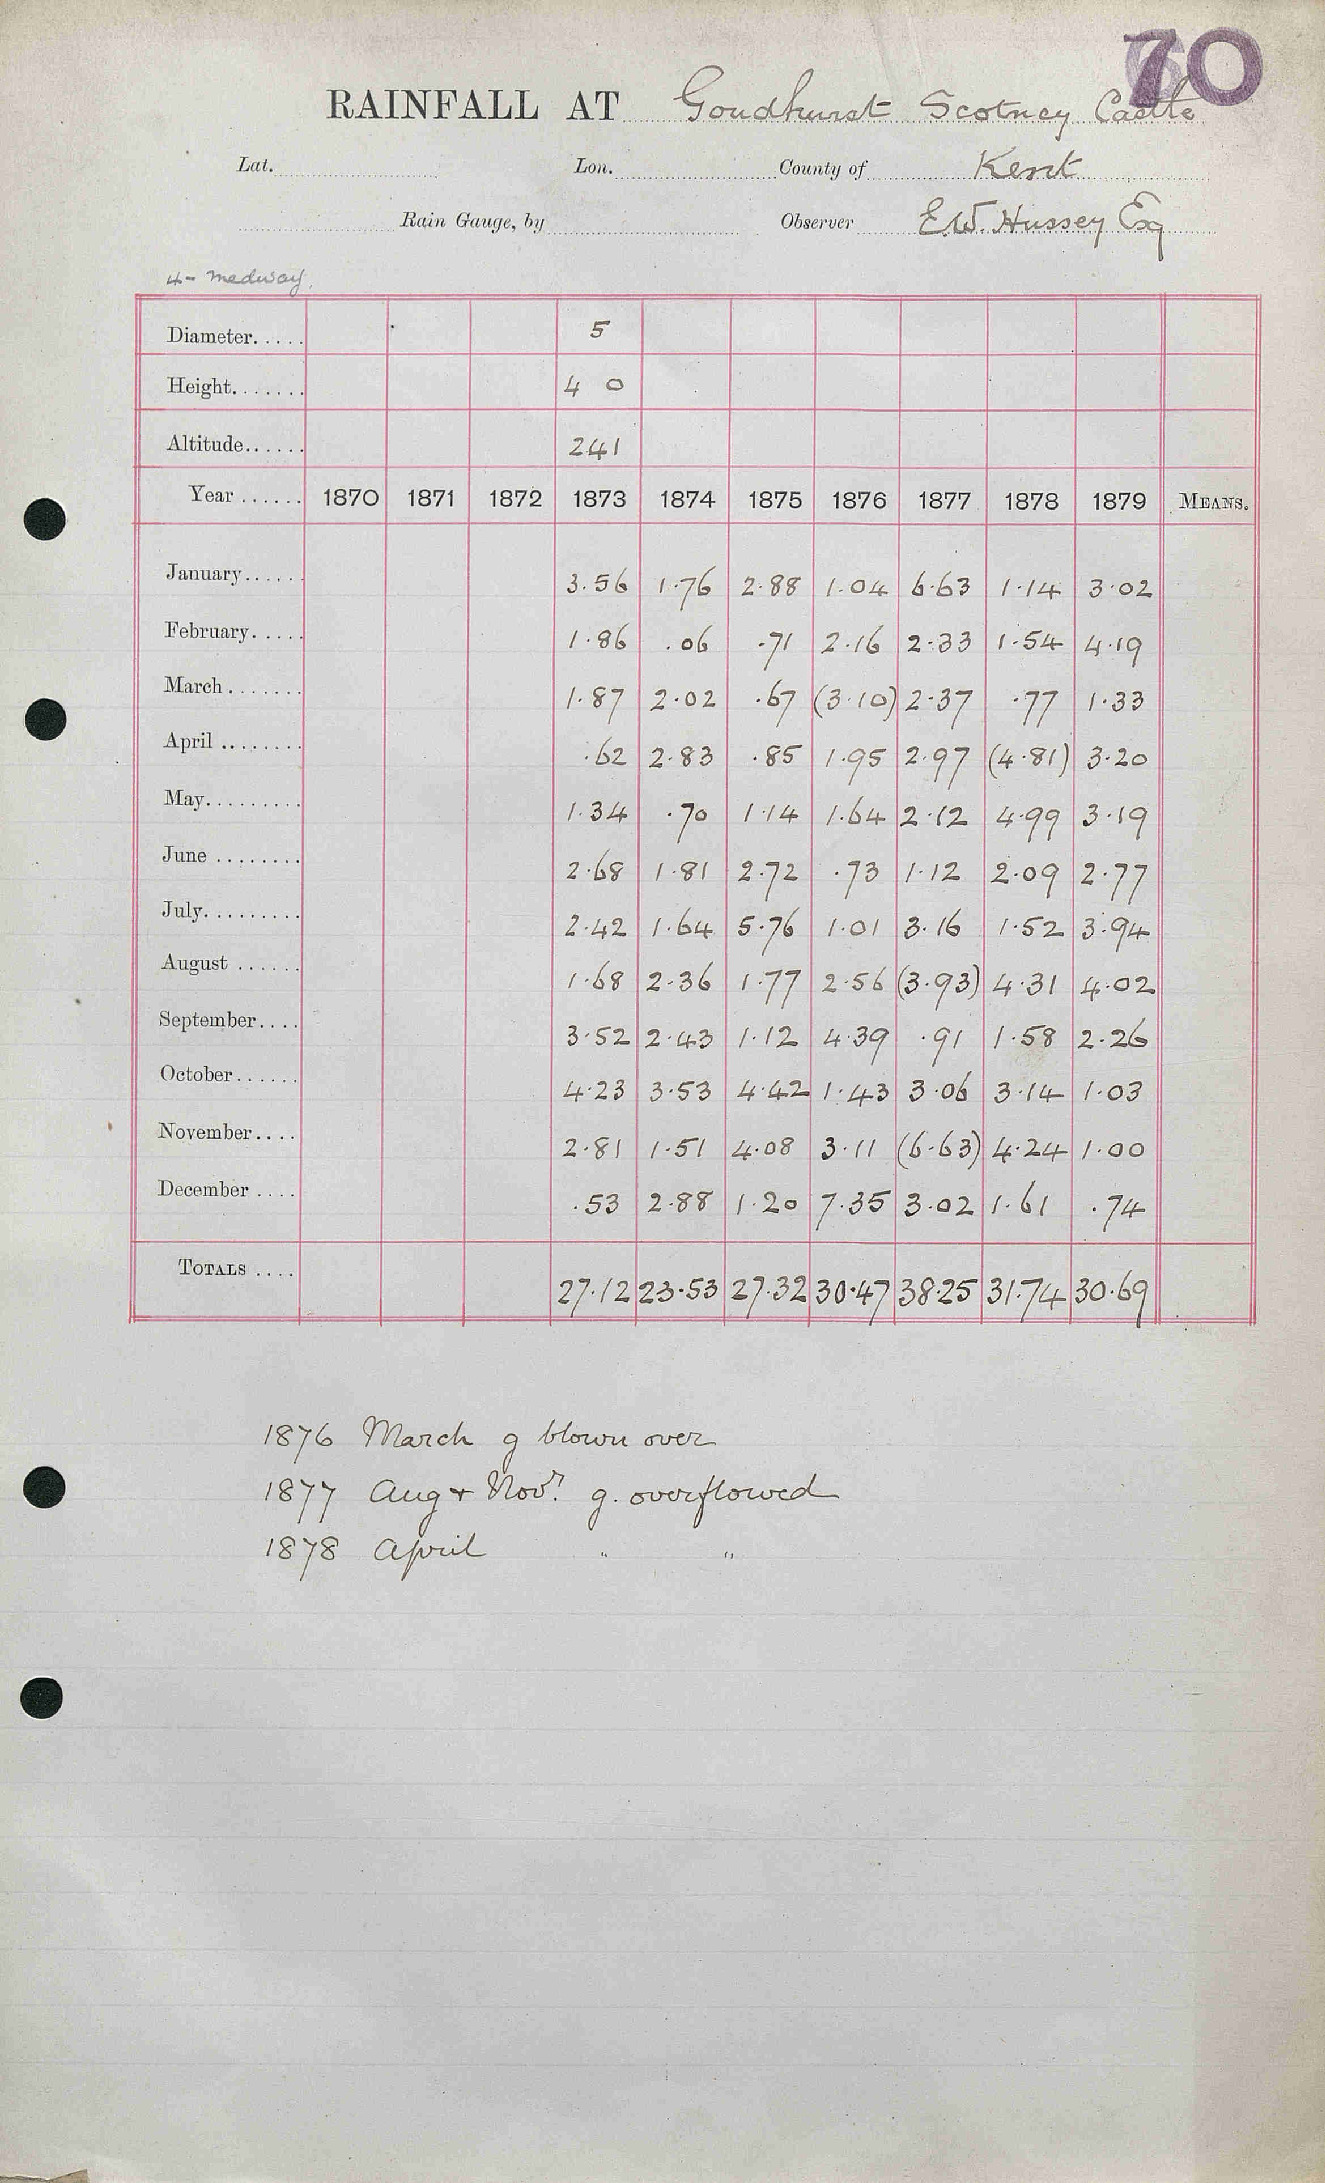 70
RAINFALL AT Goudhurst Scotney Castle
Lat. Lon. County of Kent
Rain Gauge, by Observer E.W. Hussey Esq
4- Medway.
Diameter..... 5
Height....... 4 0
Altitude...... 241
Year ...... 1870 1871 1872 1873 1874 1875 1876 1877 1878 1879 MEANS.
January...... 3.56 1.76 2.88 1.04 6.63 1.14 3.02
February..... 1.86 .06 .71 2.16 2.33 1.54 4.19
March....... 1.87 2.02 .67 (3.10) 2.37 .77 1.33
April ........ .62 2.83 .85 1.95 2.97 (4.81) 3.20
May......... 1.34 .70 1.14 1.64 2.12 4.99 3.19
June ........ 2.68 1.81 2.72 .73 1.12 2.09 2.77
July......... 2.42 1.64 5.76 1.01 3.16 1.52 3.94
August ...... 1.68 2.36 1.77 2.56 (3.93) 4.31 4.02
September.... 3.52 2.43 1.12 4.39 .91 1.58 2.26
October...... 4.23 3.53 4.42 1.43 3.06 3.14 1.03
November.... 2.81 1.51 4.08 3.11 (6.63) 4.24 1.00
December .... .53 2.88 1.20 7.35 3.02 1.61 .74
TOTALS .... 27.12 23.53 27.32 30.47 38.25 31.74 30.69
1876 March g blown over
1877 Aug + Novr. g. overflowed
1878 April " "